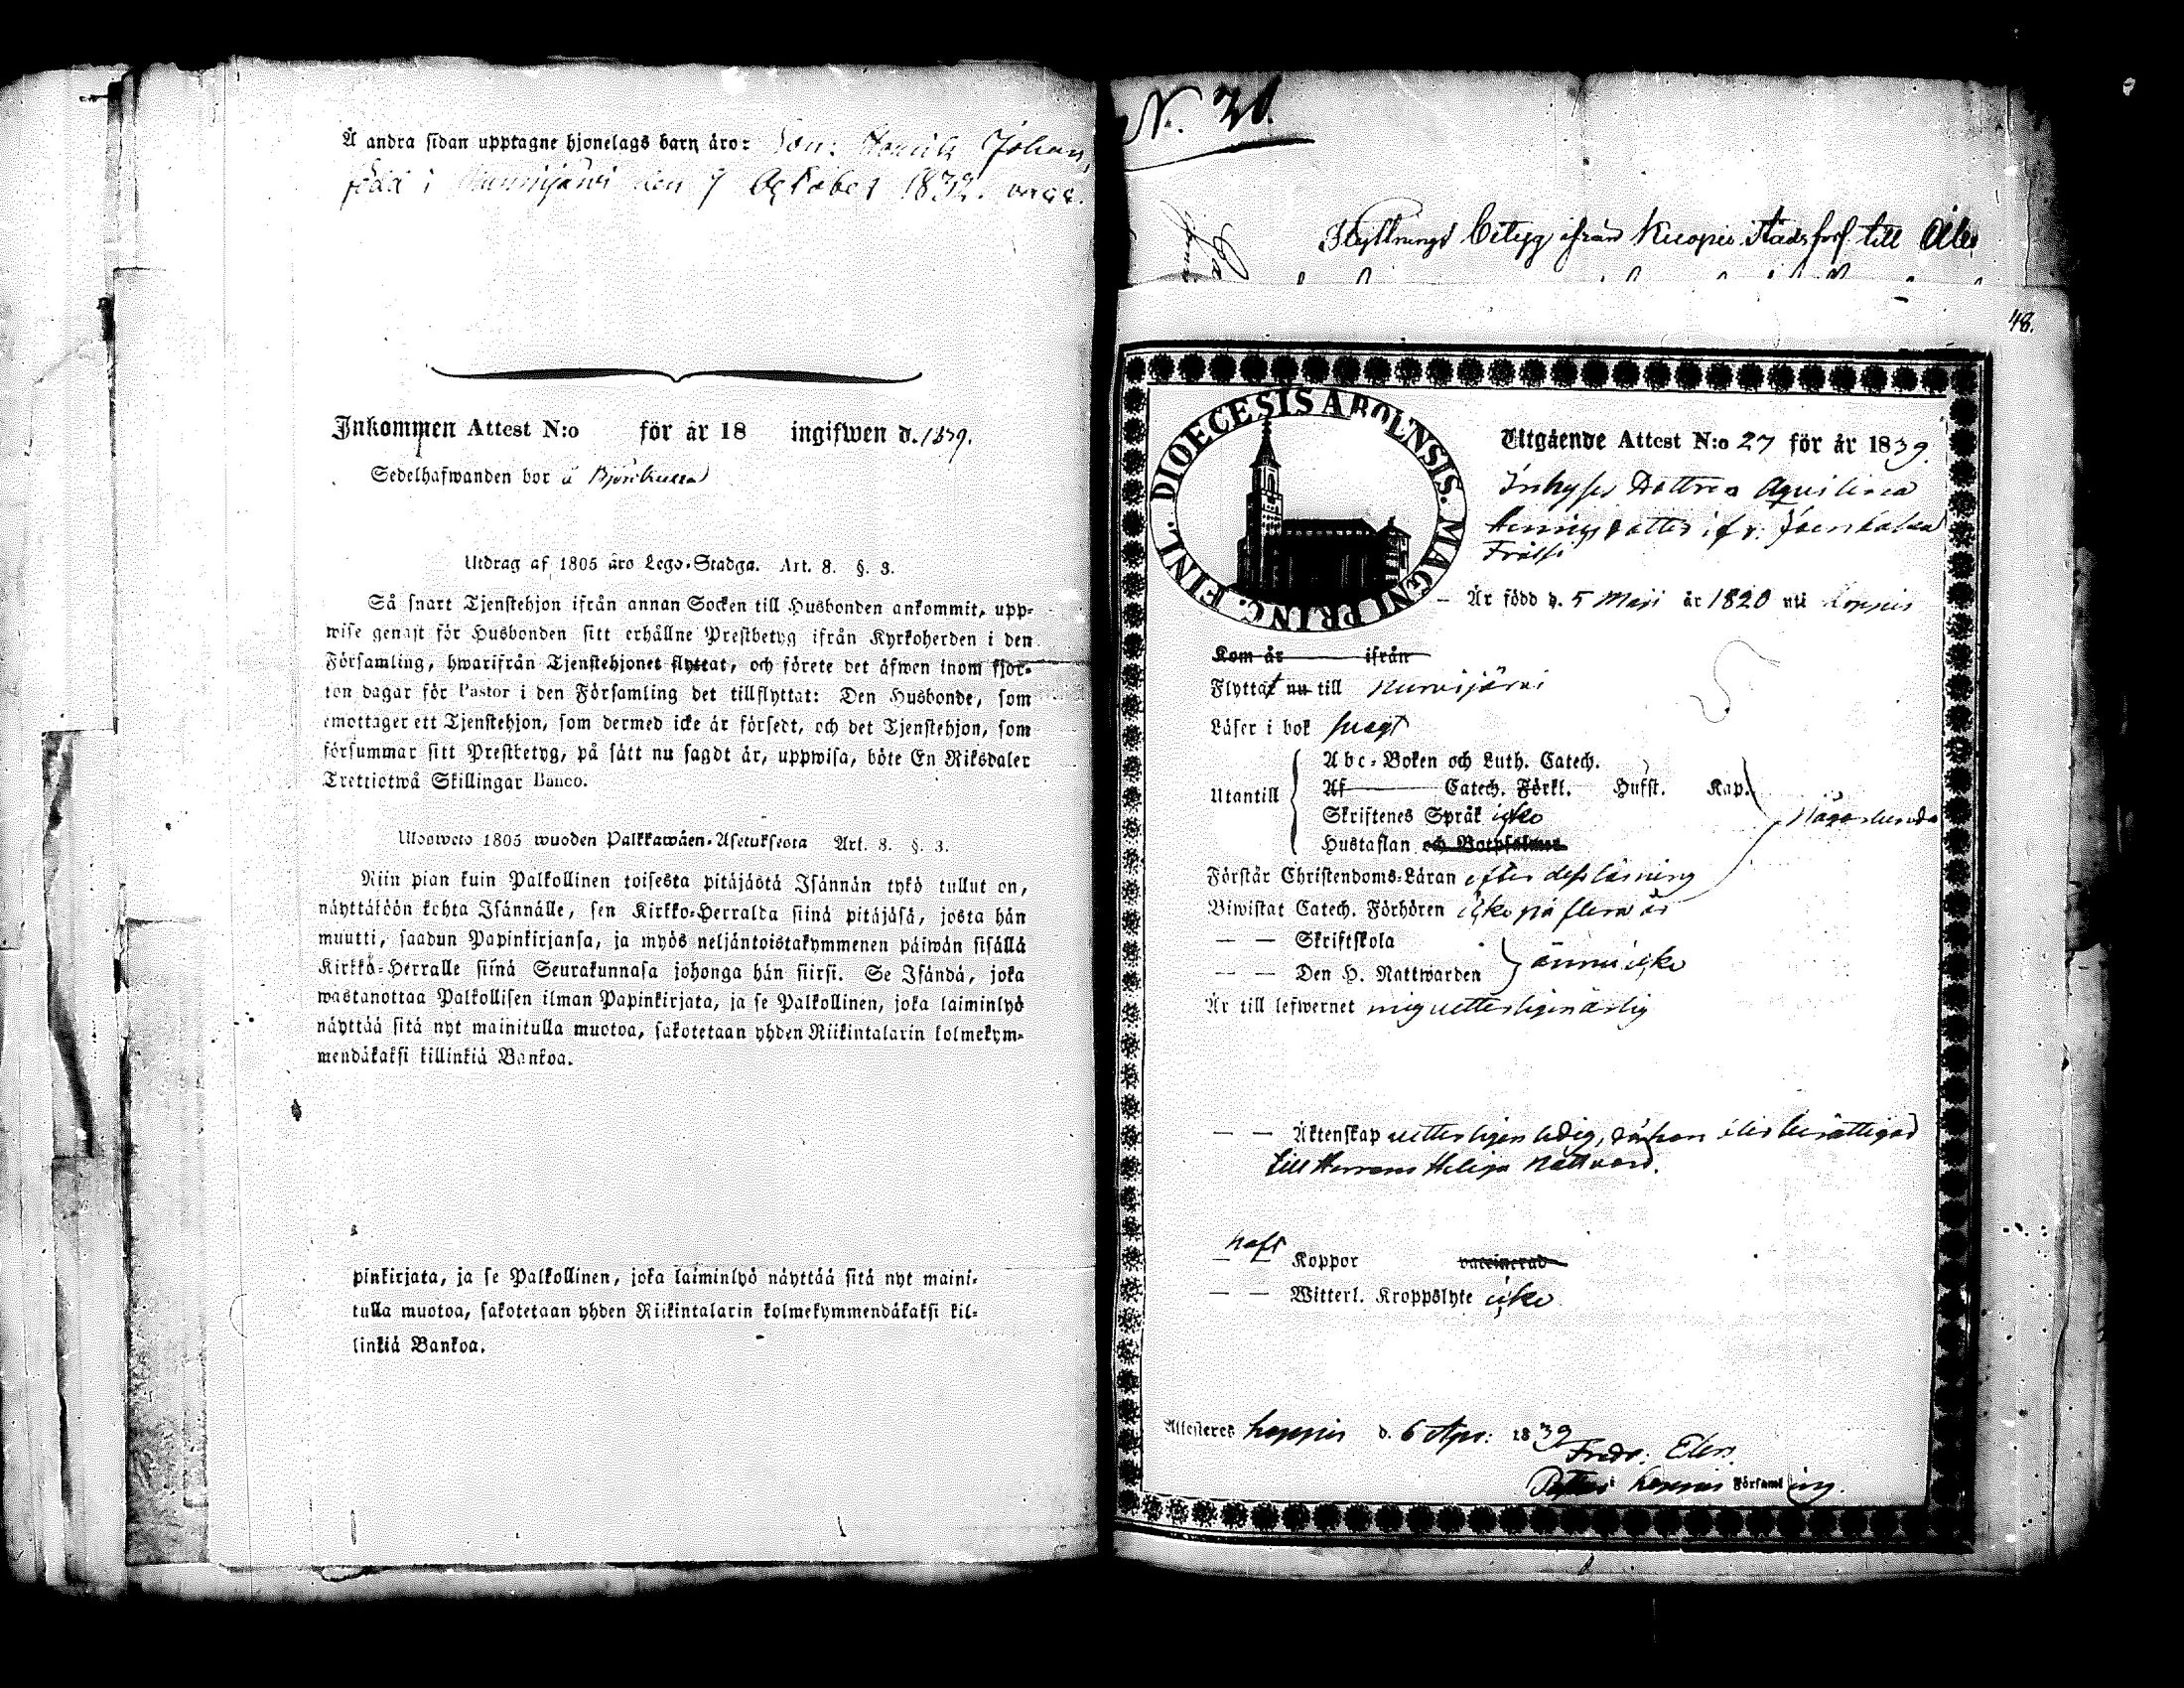 Å andra sidan upptagne hjonelags barn äro: Son: Henrik Johan,
född i Nurmijärvi den 7 October 1832. vacc.
Inkommen Attest N:o för år 18 ingifwen d. 1839.
Sedelhafwanden bor å
Utdrag af 1805 års Lego-Stadga. Art. 8. §. 3.
Så snart Tjenstehjon ifrån annan Socken till Husbonden ankommit, upp-
wise genast för Husbonden sitt erhållne Prestbetyg ifrån Kyrkoherden i den
Församling, hwarifrån Tjenstehjonet flyttat, och förete det äfwen inom fjor-
ton dagar för Pastor i den Församling det tillflyttat: Den Husbonde, som
emottager ett Tjenstehjon, som dermed icke är försedt, och det Tjenstehjon, som
försummar sitt Prestbetyg, på sätt nu sagdt är, uppwisa, böte En Riksdaler
Trettiotwå Skillingar Banco.
Ulosweto 1805 wuoden Palkkawäen-Asetuksesta Art. 8. §. 3.
Niin pian kuin Palkollinen toisesta pitäjästä Isännän tykö tullut on,
näyttäköön kohta Isännälle, sen Kirkko-Herralda siinä pitäjäsä, josta hän
muutti, saadun Papinkirjansa, ja myös neljäntoistakymmenen päiwän sisällä
Kirkko-Herralle siinä Seurakunnasa johonga hän siirsi. Se Isändä, joka
wastanottaa Palkollisen ilman Papinkirjata, ja se Palkollinen, joka laiminlyö
näyttää sitä nyt mainitulla muotoa, sakotetaan yhden Riikintalarin kolmekym-
mendäkaksi killinkiä Bankoa.
pinkirjata, ja se Palkollinen, joka laiminlyö näyttää sitä nyt maini-
tulla muotoa, sakotetaan yhden Riikintalarin kolmekymmendäkaksi kil-
linkiä Bankoa.
N. 21.
Flyttnings betyg ifrån Kuopio Stads förs. till Åbo
48.
DIOECESIS ABOENSIS. MAGNI PRINC. FINL.
Utgående Attest N:o 27 för år 1839.
Inhyses Dottren Aquilina
Henricsdotter ifr.
Frälse
Är född d. 5 Maji år 1820 uti Loppis
Kom år ifrån
Flyttat nu till Nurmijärvi
Läser i bok svagt
Utantill
Abc-Boken och Luth. Catech.
Af Catech. Förkl. Hufst. Kap.
Skriftenes Språk icke
Hustaflan och Botpsalmer
Någorlunda
Förstår Christendoms-Läran efter dess läsning
Biwistat Catech. Förhören icke på flera år
— — Skriftskola
— — Den H. Nattwarden
ännu icke
Är till lefwernet mig vetterligen ärlig
— — Äktenskap vetterligen ledig, då hon blir berättigad
till Herrans Heliga Nattvard.
— haft — Koppor vaccinerad
— — Witterl. Kroppslyte icke
Attesteres Loppis d. 6 Apr: 1839
Fredr:
Pastor i Loppis Församling.